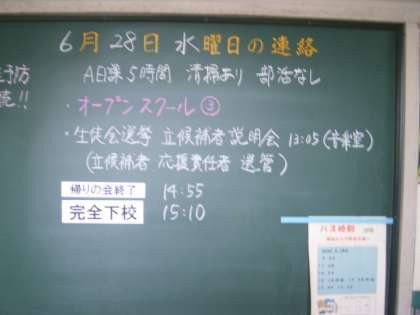 6月28日 水曜日の連絡
予防
A日課5時間 清掃あり 部活なし
続!!
・オープンスクール③
・生徒会選挙 立候補者説明会 13:05(音楽室)
(立候補者 応援責任者 選管)
帰りの会終了 14:55
完全下校 15:10
バス時刻